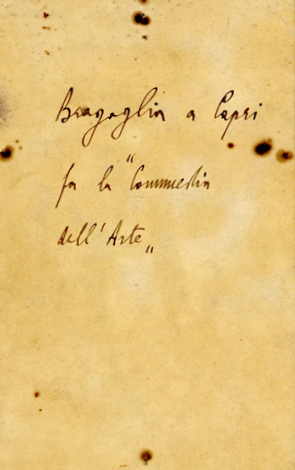 Bragaglia a Capri
fa la "Commedia
dell'Arte„